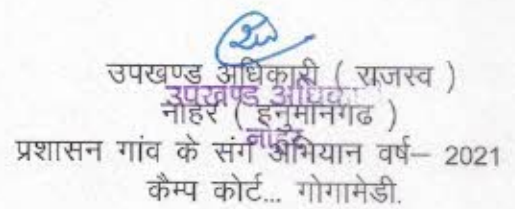 उपखण्ड अधिकारी ( राजस्व )
उपखण्ड अधिका
नोहर ( हनुमानगढ )
नोहर
प्रशासन गांव के संग अभियान वर्ष– 2021
कैम्प कोर्ट... गोगामेडी.